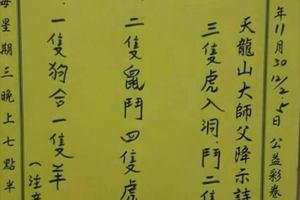 年11月30 12/2、5日 公益彩卷
天龍山大師父降示詩
三隻虎入洞鬥二隻
二隻鼠鬥四隻虎
一隻狗合一隻羊
每星期三晚上七點半